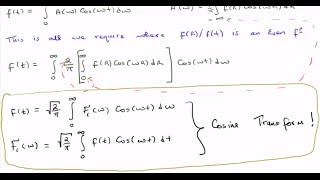 f(t) = ∫₀^∞ A(ω) Cos(ωt) dω A(ω) = 2/π ∫₀^∞ f(R) Cos(ωR) dR
This is all we require where f(R)/f(t) is an Even fⁿ
f(t) = ∫₀^∞ 2/π [∫₀^∞ f(R) Cos(ωR) dR] Cos(ωt) dω
f(t) = √(2/π) ∫₀^∞ F̂c(ω) Cos(ωt) dω
F̂c(ω) = √(2/π) ∫₀^∞ f(t) Cos(ωt) dt
Cosine Transform!